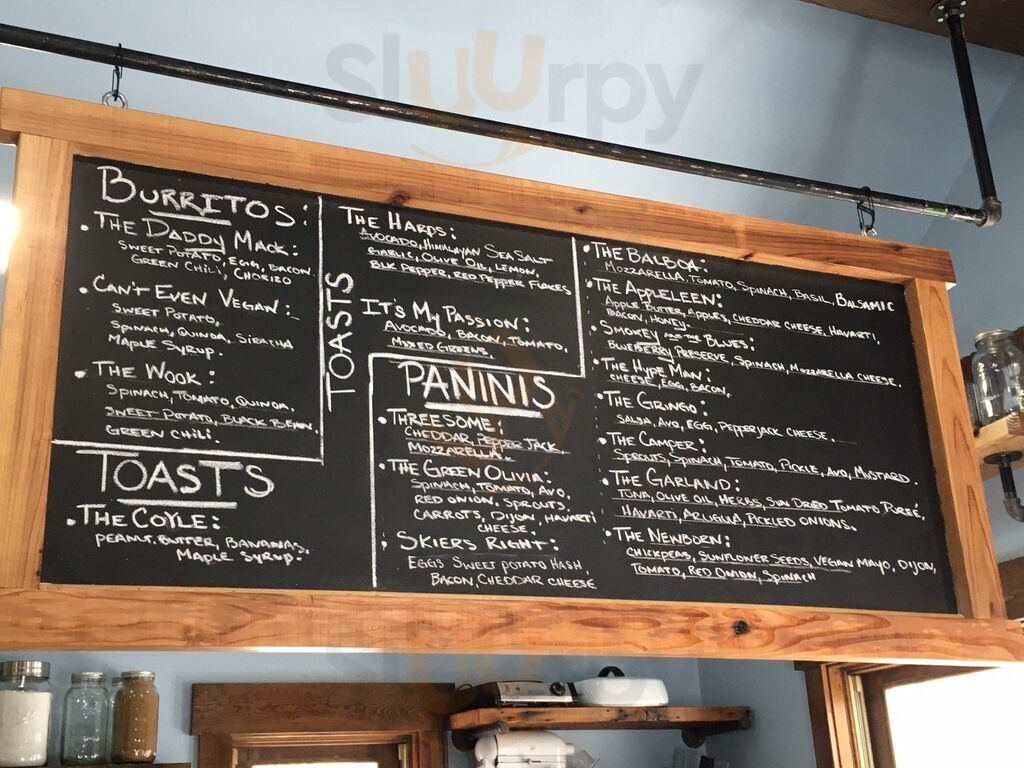 Sluurpy
BURRITOS:
• THE DADDY MACK:
SWEET POTATO, EGG, BACON,
GREEN CHILI, CHORIZO
• CAN'T EVEN VEGAN:
SWEET POTATO,
SPINACH, QUINOA, SIRACHA
MAPLE SYRUP.
• THE WOOK:
SPINACH, TOMATO, QUINOA,
SWEET POTATO, BLACK BEAN,
GREEN CHILI.
TOASTS
• THE COYLE:
PEANUT BUTTER, BANANAS,
MAPLE SYRUP.
TOASTS
THE HARDS:
AVOCADO, HIMALAYAN SEA SALT
GARLIC, OLIVE OIL, LEMON,
BLK PEPPER, RED PEPPER FLAKES
IT'S MY PASSION:
AVOCADO, BACON, TOMATO,
MIXED GREENS.
PANINIS
• THREESOME:
CHEDDAR, PEPPER JACK,
MOZZARELLA.
• THE GREEN OLIVIA:
SPINACH, TOMATO, AVO,
RED ONION, SPROUTS,
CARROTS, DIJON, HAVARTI
CHEESE.
• SKIERS RIGHT:
EGGS SWEET POTATO HASH
BACON, CHEDDAR CHEESE
• THE BALBOA:
MOZZARELLA, TOMATO, SPINACH, BASIL, BALSAMIC
• THE APPLELEEN:
APPLE BUTTER, APPLES, CHEDDAR CHEESE, HAVARTI,
BACON, HONEY.
• SMOKEY AND THE BLUES:
BLUEBERRY PRESERVE, SPINACH, MOZZARELLA CHEESE.
• THE HYPE MAN:
CHEESE, EGG, BACON,
• THE GRINGO:
SALSA, AVO, EGG, PEPPERJACK CHEESE.
• THE CAMPER:
SPROUTS, SPINACH, TOMATO, PICKLE, AVO, MUSTARD.
• THE GARLAND:
TUNA, OLIVE OIL, HERBS, SUN DRIED TOMATO PURÉE,
HAVARTI, ARUGULA, PICKLED ONIONS.
• THE NEWBORN:
CHICKPEAS, SUNFLOWER SEEDS, VEGAN MAYO, DIJON,
TOMATO, RED ONION, SPINACH
Sluurpy